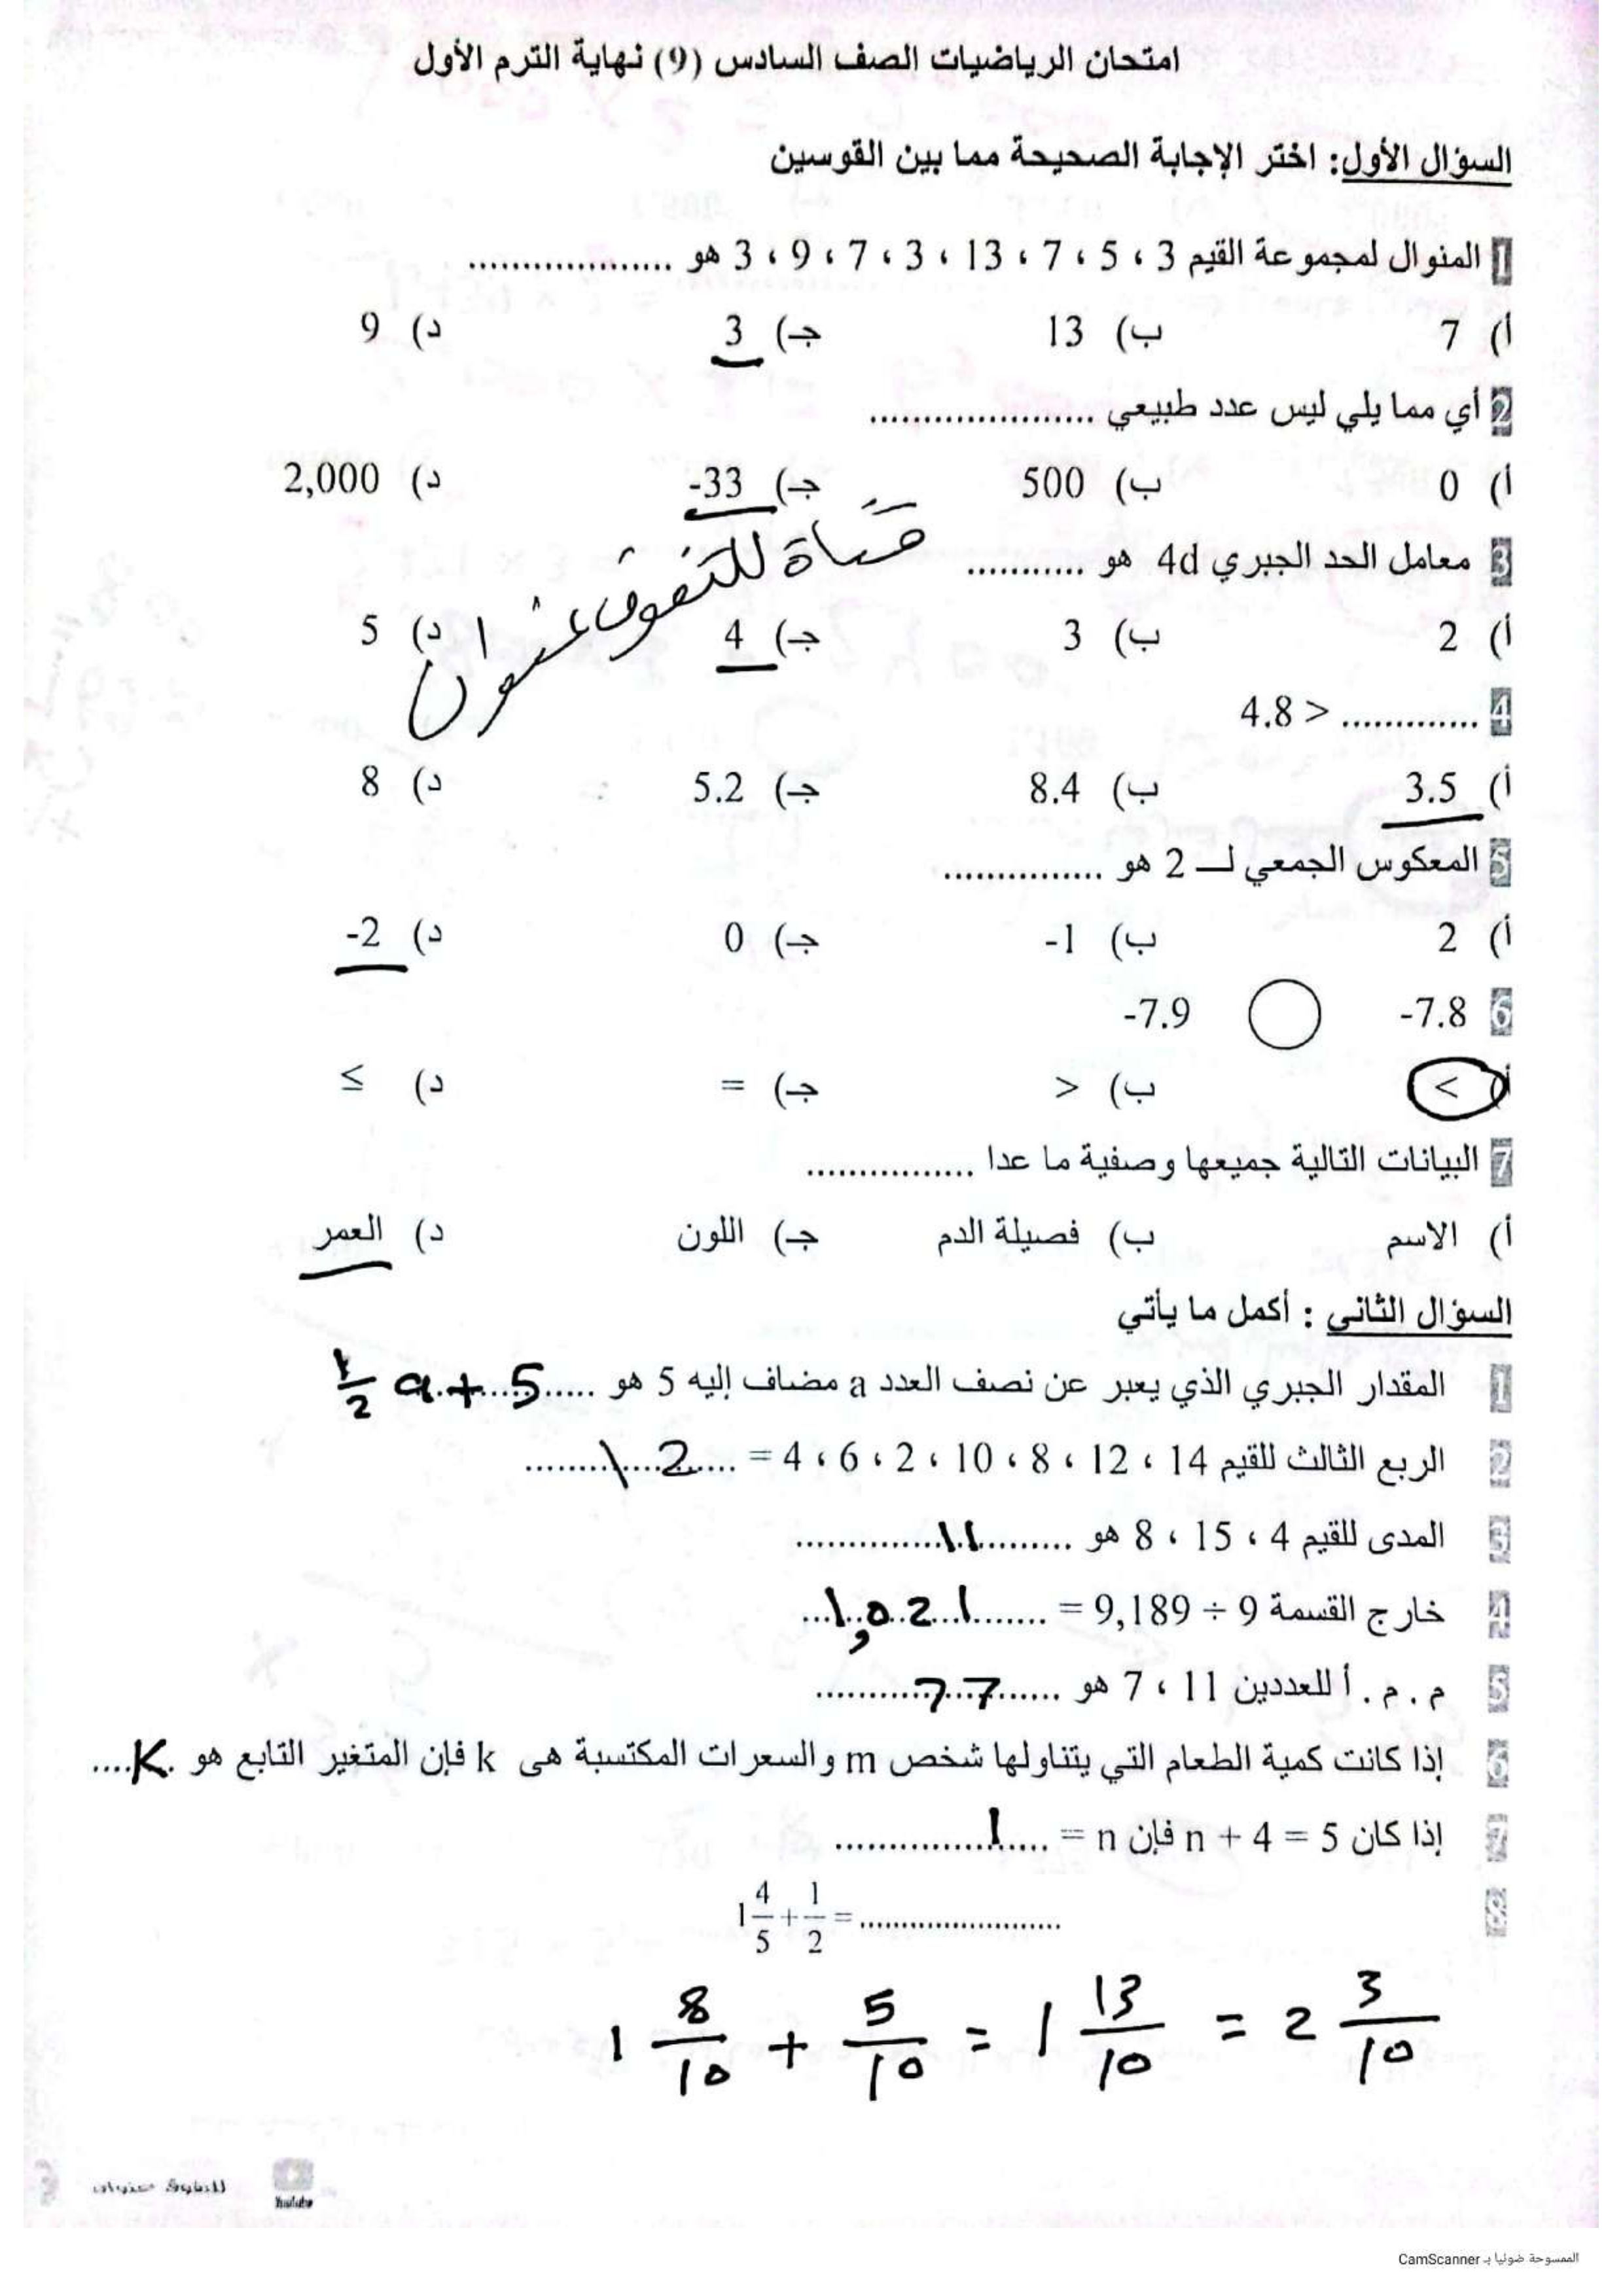 امتحان الرياضيات الصف السادس (9) نهاية الترم الأول
السؤال الأول: اختر الإجابة الصحيحة مما بين القوسين
1 المنوال لمجموعة القيم 3 ، 5 ، 7 ، 13 ، 3 ، 7 ، 9 ، 3 هو ...................
أ) 7 ب) 13 جـ) 3 د) 9
2 أي مما يلي ليس عدد طبيعي .....................
أ) 0 ب) 500 جـ) -33 د) 2,000
3 معامل الحد الجبري 4d هو ...........
قناة للتفوق عنوان
أ) 2 ب) 3 جـ) 4 د) 5
4 4.8 > .............
أ) 3.5 ب) 8.4 جـ) 5.2 د) 8
5 المعكوس الجمعي لـ 2 هو ...............
أ) 2 ب) -1 جـ) 0 د) -2
6 -7.8 -7.9
أ) < ب) > جـ) = د) ≤
7 البيانات التالية جميعها وصفية ما عدا ................
أ) الاسم ب) فصيلة الدم جـ) اللون د) العمر
السؤال الثاني : أكمل ما يأتي
1 المقدار الجبري الذي يعبر عن نصف العدد a مضاف إليه 5 هو 1/2 a + 5
2 الربع الثالث للقيم 14 ، 12 ، 8 ، 10 ، 2 ، 6 ، 4 = 12
3 المدى للقيم 4 ، 15 ، 8 هو 11
4 خارج القسمة 9 ÷ 9,189 = 1,021
5 م . م . أ للعددين 11 ، 7 هو 77
6 إذا كانت كمية الطعام التي يتناولها شخص m والسعرات المكتسبة هى k فإن المتغير التابع هو K
7 إذا كان n + 4 = 5 فإن n = 1
8 1 4/5 + 1/2 = ........................
1 8/10 + 5/10 = 1 13/10 = 2 3/10
للتفوق عنوان
YouTube
الممسوحة ضوئيا بـ CamScanner